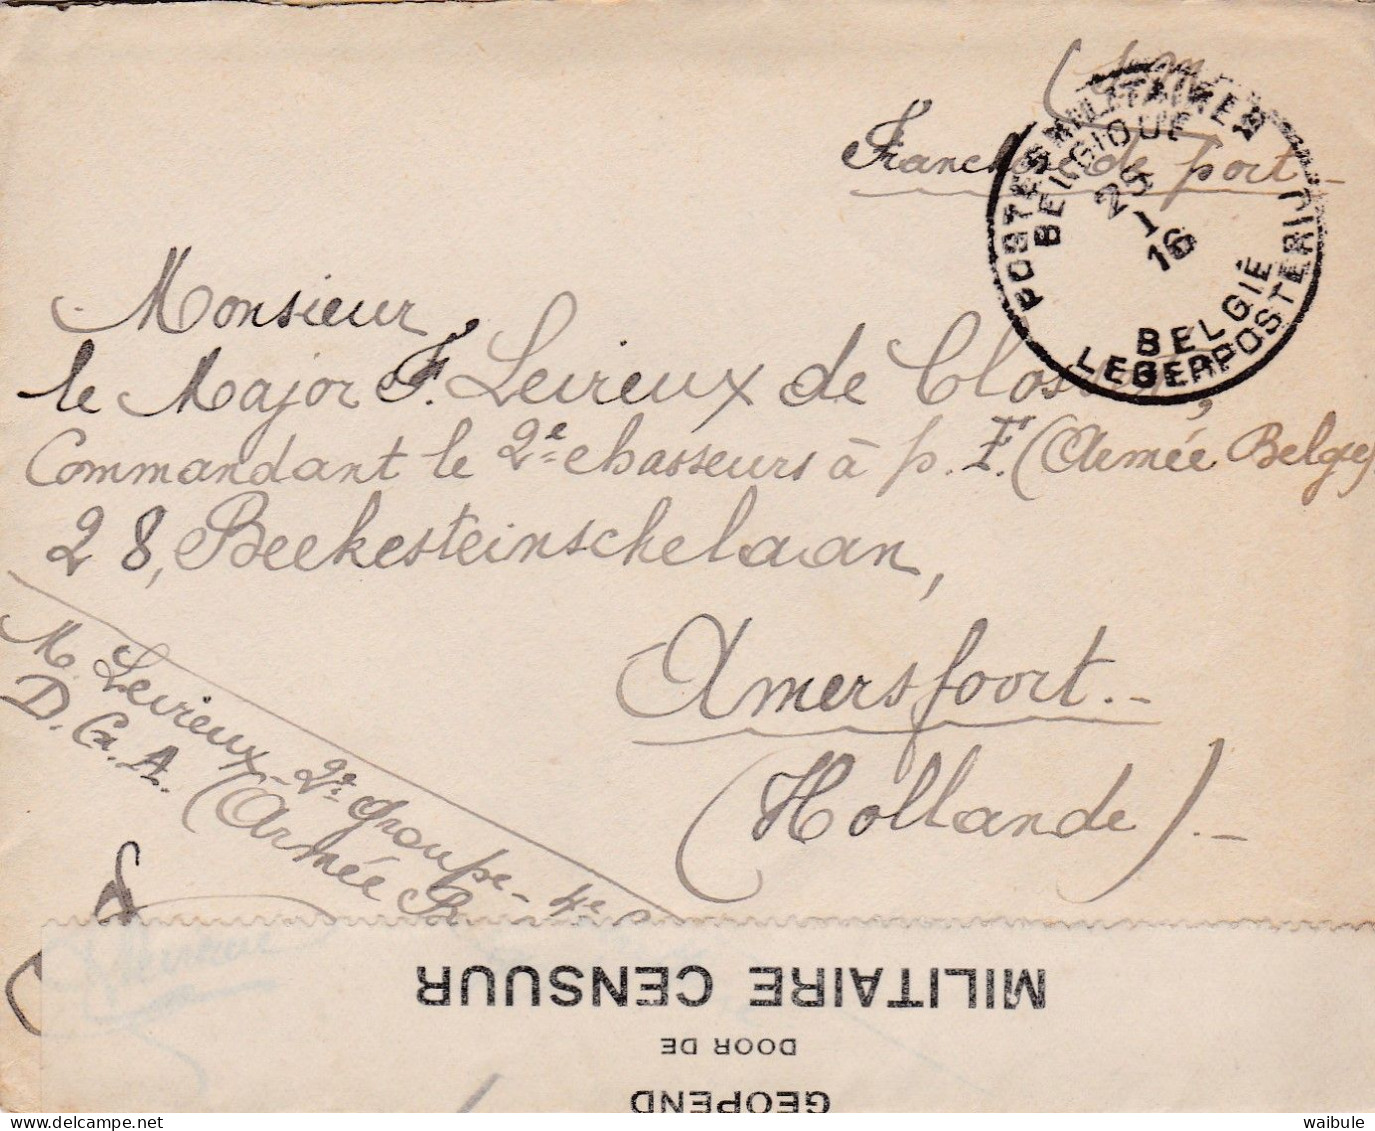 Franchise de port
POSTES MILITAIRES
BELGIQUE
25
1
16
BELGIË
LEGERPOSTERIJ
Monsieur
le Major F. Levieux de Clos
Commandant le 2e chasseurs à p. F. (Armée Belge)
28, Beekesteinschelaan,
Amersfoort.-
(Hollande).-
M. Levieux - 2e groupe - 4e
D. C. A. (Armée B
GEOPEND
DOOR DE
MILITAIRE CENSUUR
delcampe.net
waibule